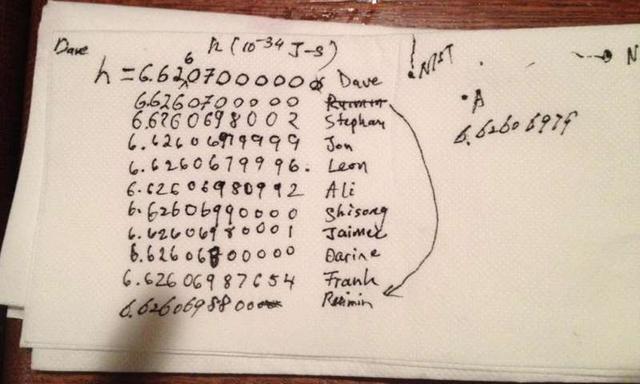 Dave h (10^-34 J-s)
h = 6.62607000000 Dave
6.62607000000 Ruimin
6.62606980002 Stephan
6.62606979999 Jon
6.62606799996. Leon
6.62606980992 Ali
6.62606990000 Shisong
6.62606980001 Jaimee
6.62606800000 Darine
6.62606987654 Frank
6.626069880000 Ruimin
NIST N
A
6.62606979